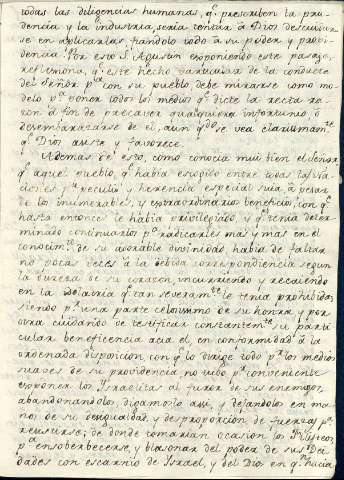 todas las diligencias humanas, q.e prescriben la pru-
dencia, y la industria, seria tentar à Dios descuidar
se en aplicarlas, fiandolo todo à su poder y provi-
dencia. Por esto S. Agustin exponiendo este pasaje,
reflexiona, q.e este hecho particular de la conducta
del Señor p.a con su pueblo, debe mirarse como mo-
delo p.a poner todos los medios q.e dicte la recta ra-
zon à fin de precaver qualquiera infortunio, ò
desembarazarse de èl, aun q.do se vea claram.te
q.e Dios asiste y favorece.
Ademas de esto, como conocia mui bien el Señor
q.e aquel pueblo, q.e habia escogido entre todas las na
ciones p.r peculio y herencia especial suia, à pesar
de los inumerables, y extraordinarios beneficios, con q.e
hasta entonces le habia privilegiado, y q.e tenia deter
minado continuarlos p.a radicarles mas y mas en el
conocim.to de su adorable divinidad, habia de faltar
no pocas veces à la debida correspondiencia segun
la dureza de su corazon, incurriendo y recaiendo
en la idolatria q.e tan severam.te le tenia prohibida;
siendo p.r una parte celosisimo de su honra, y por
otra cuidando de testificar constantem.te su parti
cular beneficencia acia el, en conformidad à la
ordenada disposicion con q.e lo dirige todo p.r los medios
suaves de su providencia no hubo p.r conveniente
exponer los Israelitas al furor de sus enemigos,
abandonandolos, digamoslo asi, y dejandolos en ma
nos de su desigualdad, y desproporcion de fuerzas p.a
resistirse; de donde tomarian ocasion los Filisteos,
p.a ensoberbecerse, y blasonar del poder de sus Dei
dades con escarnio de Israel, y del Dios en q.n hacia